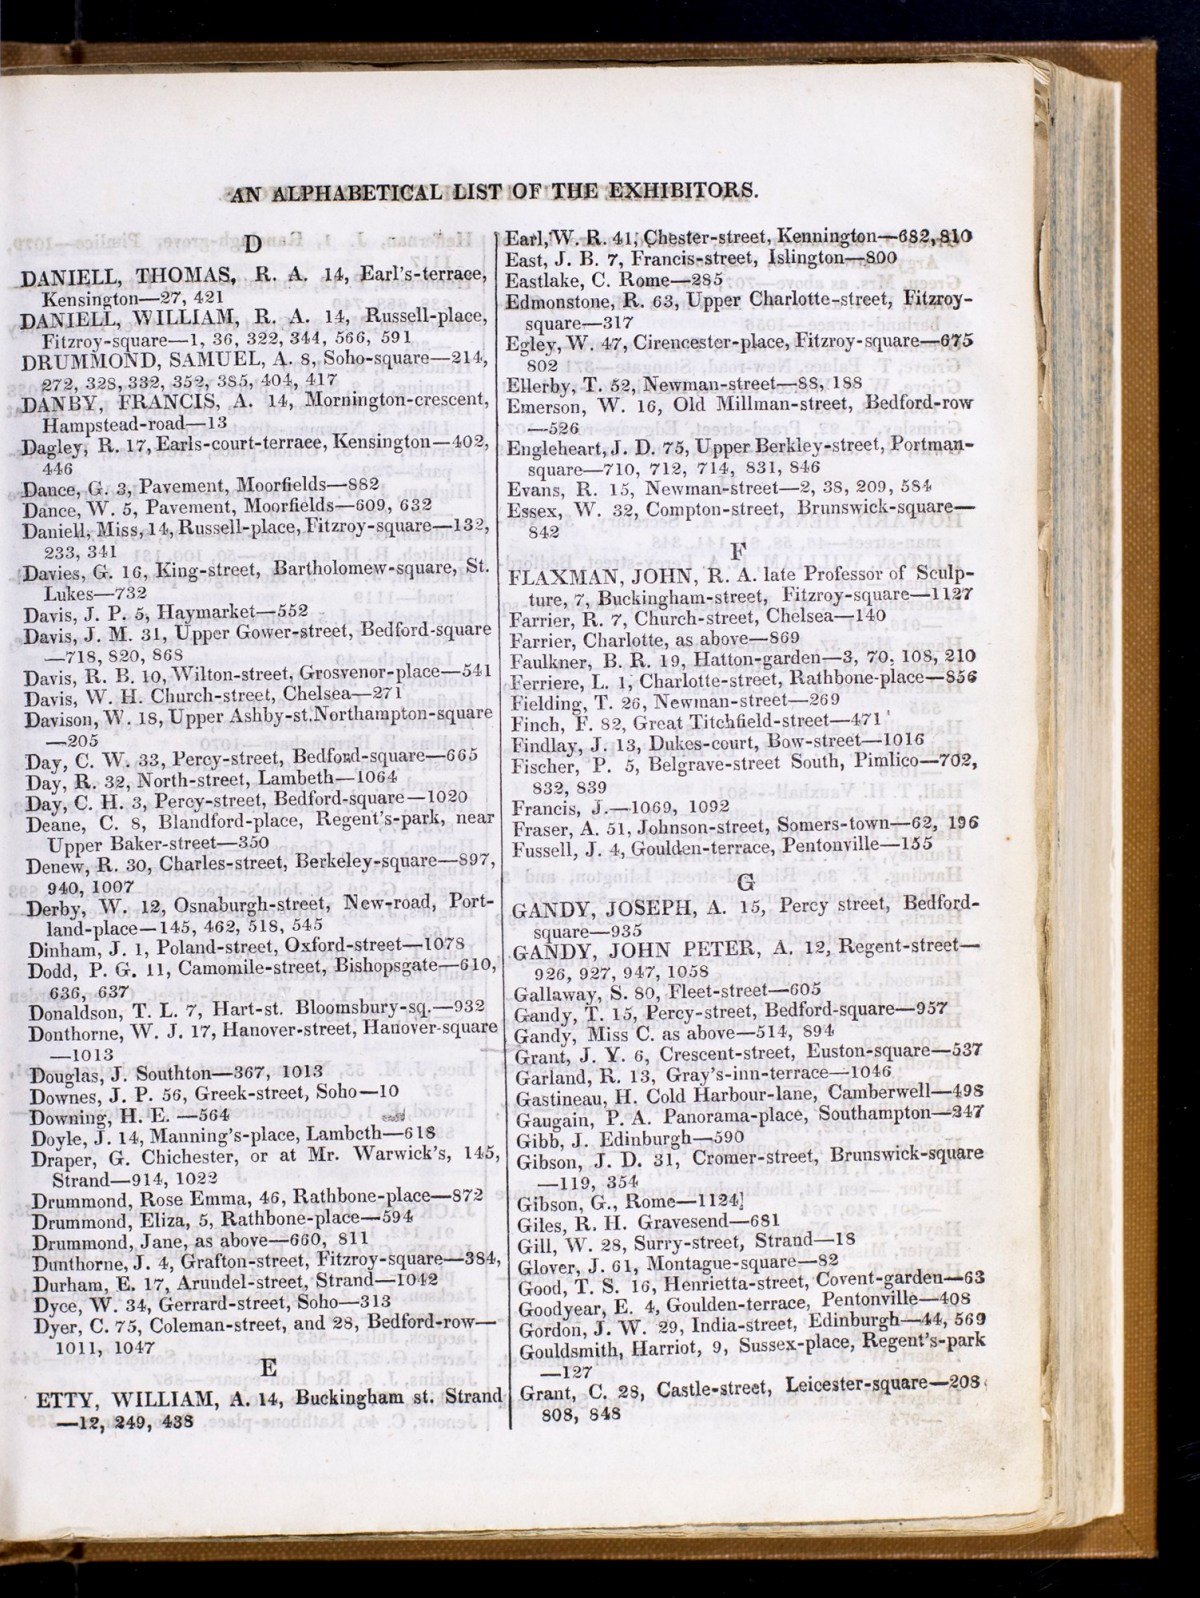 AN ALPHABETICAL LIST OF THE EXHIBITORS.
D
DANIELL, THOMAS, R. A. 14, Earl's-terrace,
Kensington—27, 421
DANIELL, WILLIAM, R. A. 14, Russell-place,
Fitzroy-square—1, 36, 322, 344, 566, 591
DRUMMOND, SAMUEL, A. 8, Soho-square—214,
272, 328, 332, 352, 385, 404, 417
DANBY, FRANCIS, A. 14, Mornington-crescent,
Hampstead-road—13
Dagley, R. 17, Earls-court-terrace, Kensington—402,
446
Dance, G. 3, Pavement, Moorfields—882
Dance, W. 5, Pavement, Moorfields—609, 632
Daniell, Miss, 14, Russell-place, Fitzroy-square—132,
233, 341
Davies, G. 16, King-street, Bartholomew-square, St.
Lukes—732
Davis, J. P. 5, Haymarket—552
Davis, J. M. 31, Upper Gower-street, Bedford-square
—718, 820, 868
Davis, R. B. 10, Wilton-street, Grosvenor-place—541
Davis, W. H. Church-street, Chelsea—271
Davison, W. 18, Upper Ashby-st. Northampton-square
—205
Day, C. W. 33, Percy-street, Bedford-square—665
Day, R. 32, North-street, Lambeth—1064
Day, C. H. 3, Percy-street, Bedford-square—1020
Deane, C. 8, Blandford-place, Regent's-park, near
Upper Baker-street—350
Denew, R. 30, Charles-street, Berkeley-square—897,
940, 1007
Derby, W. 12, Osnaburgh-street, New-road, Port-
land-place—145, 462, 518, 545
Dinham, J. 1, Poland-street, Oxford-street—1078
Dodd, P. G. 11, Camomile-street, Bishopsgate—610,
636, 637
Donaldson, T. L. 7, Hart-st. Bloomsbury-sq.—932
Donthorne, W. J. 17, Hanover-street, Hanover-square
—1013
Douglas, J. Southton—367, 1013
Downes, J. P. 56, Greek-street, Soho—10
Downing, H. E. —564
Doyle, J. 14, Manning's-place, Lambeth—618
Draper, G. Chichester, or at Mr. Warwick's, 145,
Strand—914, 1022
Drummond, Rose Emma, 46, Rathbone-place—872
Drummond, Eliza, 5, Rathbone-place—594
Drummond, Jane, as above—660, 811
Dunthorne, J. 4, Grafton-street, Fitzroy-square—384,
Durham, E. 17, Arundel-street, Strand—1042
Dyce, W. 34, Gerrard-street, Soho—313
Dyer, C. 75, Coleman-street, and 28, Bedford-row—
1011, 1047
E
ETTY, WILLIAM, A. 14, Buckingham st. Strand
—12, 249, 438
Earl, W. R. 41, Chester-street, Kennington—682, 810
East, J. B. 7, Francis-street, Islington—800
Eastlake, C. Rome—285
Edmonstone, R. 63, Upper Charlotte-street, Fitzroy-
square—317
Egley, W. 47, Cirencester-place, Fitzroy-square—675
802
Ellerby, T. 52, Newman-street—88, 188
Emerson, W. 16, Old Millman-street, Bedford-row
—526
Engleheart, J. D. 75, Upper Berkley-street, Portman-
square—710, 712, 714, 831, 846
Evans, R. 15, Newman-street—2, 38, 209, 584
Essex, W. 32, Compton-street, Brunswick-square—
842
F
FLAXMAN, JOHN, R. A. late Professor of Sculp-
ture, 7, Buckingham-street, Fitzroy-square—1127
Farrier, R. 7, Church-street, Chelsea—140
Farrier, Charlotte, as above—869
Faulkner, B. R. 19, Hatton-garden—3, 70, 108, 210
Ferriere, L. 1, Charlotte-street, Rathbone-place—856
Fielding, T. 26, Newman-street—269
Finch, F. 82, Great Titchfield-street—471
Findlay, J. 13, Dukes-court, Bow-street—1016
Fischer, P. 5, Belgrave-street South, Pimlico—702,
832, 839
Francis, J.—1069, 1092
Fraser, A. 51, Johnson-street, Somers-town—62, 196
Fussell, J. 4, Goulden-terrace, Pentonville—155
G
GANDY, JOSEPH, A. 15, Percy street, Bedford-
square—935
GANDY, JOHN PETER, A. 12, Regent-street—
926, 927, 947, 1058
Gallaway, S. 80, Fleet-street—605
Gandy, T. 15, Percy-street, Bedford-square—957
Gandy, Miss C. as above—514, 894
Grant, J. Y. 6, Crescent-street, Euston-square—537
Garland, R. 13, Gray's-inn-terrace—1046
Gastineau, H. Cold Harbour-lane, Camberwell—498
Gaugain, P. A. Panorama-place, Southampton—247
Gibb, J. Edinburgh—590
Gibson, J. D. 31, Cromer-street, Brunswick-square
—119, 354
Gibson, G., Rome—1124
Giles, R. H. Gravesend—681
Gill, W. 28, Surry-street, Strand—18
Glover, J. 61, Montague-square—82
Good, T. S. 16, Henrietta-street, Covent-garden—63
Goodyear, E. 4, Goulden-terrace, Pentonville—408
Gordon, J. W. 29, India-street, Edinburgh—44, 569
Gouldsmith, Harriot, 9, Sussex-place, Regent's-park
—127
Grant, C. 28, Castle-street, Leicester-square—208
808, 848